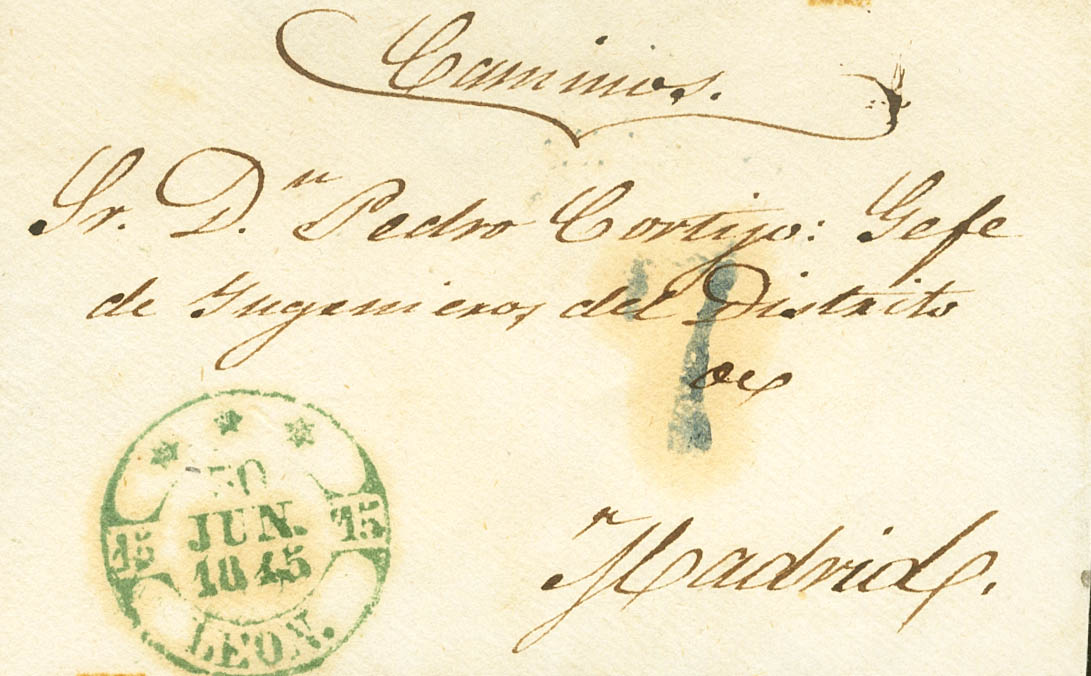 Caminos.
Sr. Dn. Pedro Cortijo: Gefe
de Yngenieros del Distrito
de
Madrid.
30
JUN.
1845
15
15
LEON.